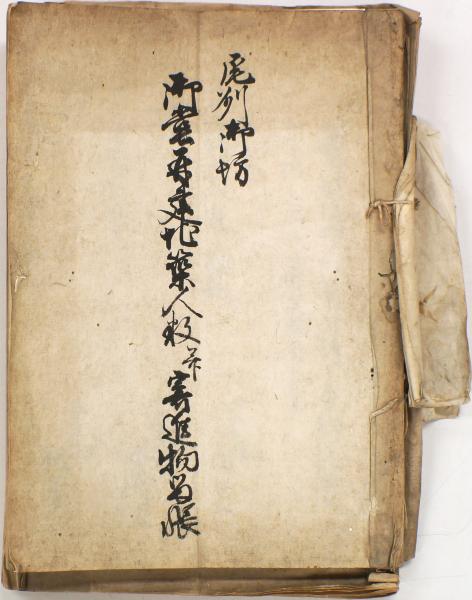 尾州御坊
御堂再建地築人数并寄進物留帳